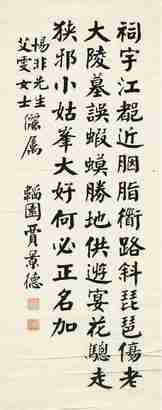 祠宇江都近胭脂衖路斜琵琶傷老
大陵墓誤蝦蟆勝地供遊宴花驄走
狹邪小姑峯大好何必正名加
楊非先生
艾雯女士 儷属
韜園賈景德